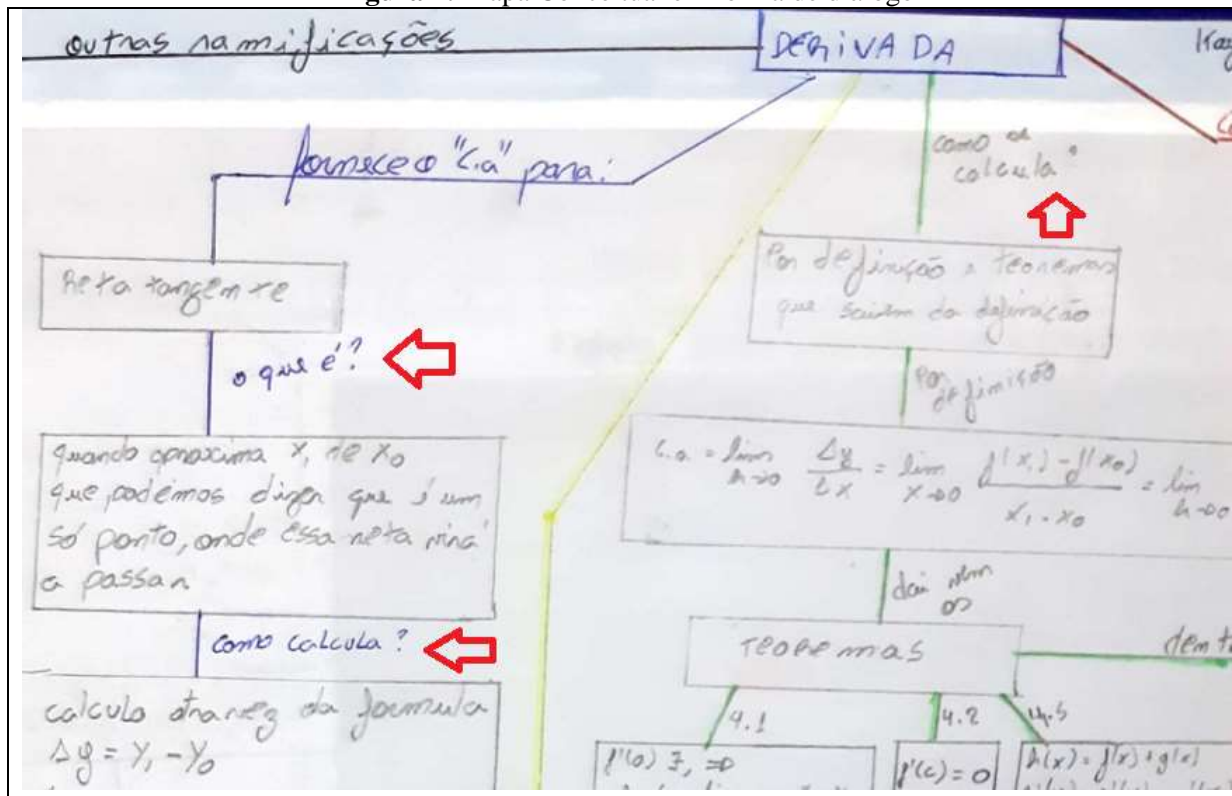 outras ramificações
DERIVADA
fornece o "C.a" para:
como se
calcula?
Reta tangente
Por definição e teoremas
que saiem da definição
o que é?
Por
definição
quando aproxima x₁ de x₀
que podemos dizer que é um
só ponto, onde essa reta virá
a passar
C.a = lim h→0 Δy/Δx = lim x→0 f(x₁) - f(x₀) / x₁ - x₀ = lim h→0
daí vem
os
como calcula?
TEOREMAS
calculo atravez da formula
Δy = y₁ - y₀
4.1
4.2
4.5
f'(c) = 0
h(x) = f(x) + g(x)